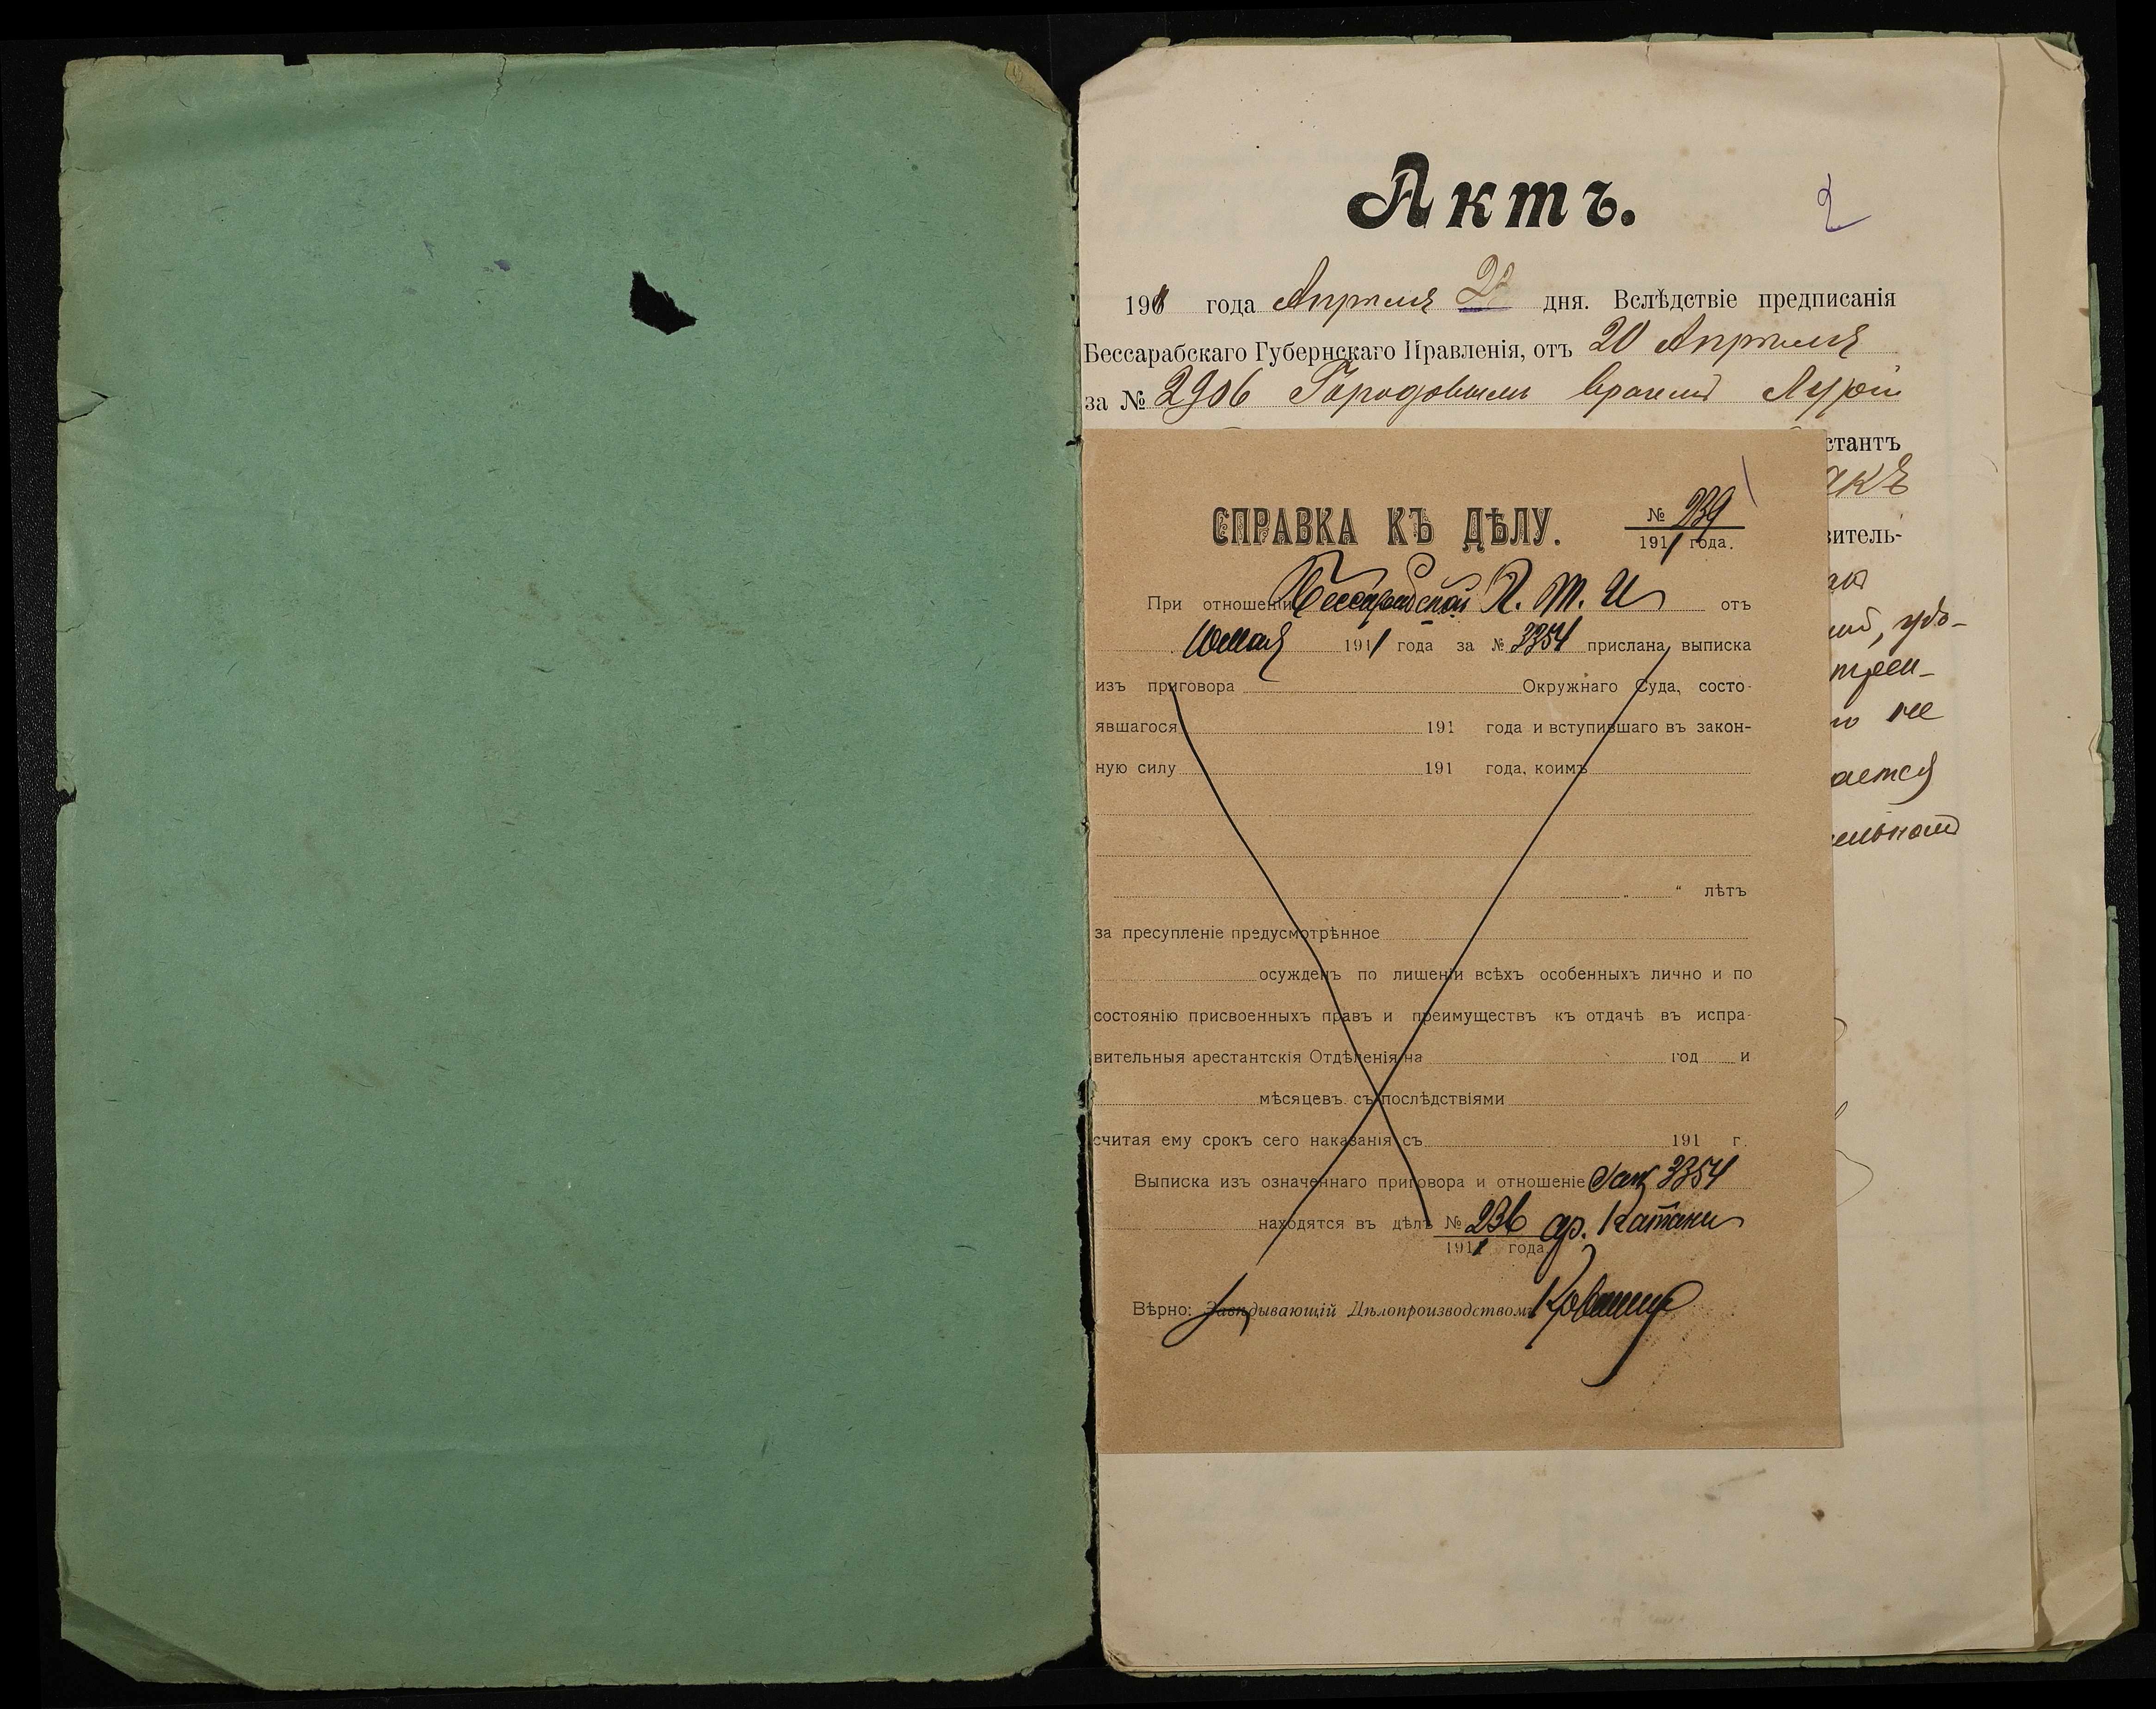 Актъ.
2
190 года Апрѣля 2 дня. Вслѣдствіе предписанія
Бессарабскаго Губернскаго Правленія, отъ 20 Апрѣля
за № 2906 Городовымъ врачемъ
стантъ
акъ
витель-
трен-
не
ается
ельной
СПРАВКА КЪ ДѢЛУ. № 239
1911 года.
При отношеніи Бессарабской К. Т. И. отъ
10 Мая 1911 года за № 3354 прислана выписка
изъ приговора Окружнаго Суда, состо-
явшагося 191 года и вступившаго въ закон-
ную силу 191 года, коимъ
„ “ лѣтъ
за пресупленіе предусмотрѣнное
осужденъ по лишеніи всѣхъ особенныхъ лично и по
состоянію присвоенныхъ правъ и преимуществъ къ отдачѣ въ испра-
вительныя арестантскія Отдѣленія на год и
мѣсяцевъ съ послѣдствіями
считая ему срокъ сего наказанія съ 191 г.
Выписка изъ означеннаго приговора и отношеніе за № 3354
находятся въ дѣлѣ № 236 ар. Катаки
1911 года.
Вѣрно: Завѣдывающій Дѣлопроизводствомъ